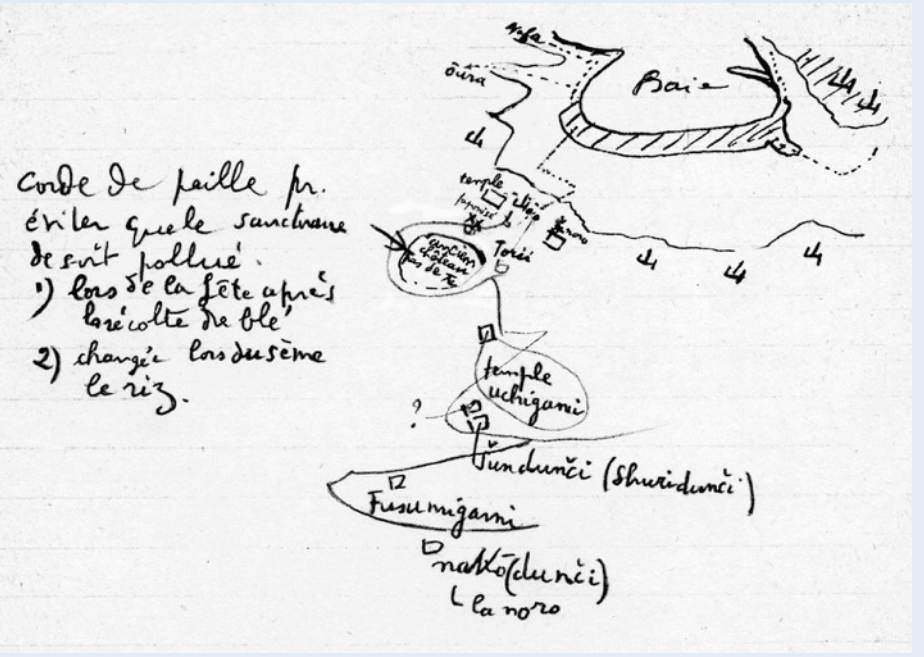 Nafa
ōura
Baie
corde de paille pr.
éviter que le sanctuaire
de soit pollué.
1) lors de la fête après
la récolte de blé
2) changée lors du sème
le riz.
temple
japonisé
noro
ancien
château
Torii
temple
uchigami
?
Šundunči (Shuridunči)
Fusumigami
nakō (dunči)
la noro